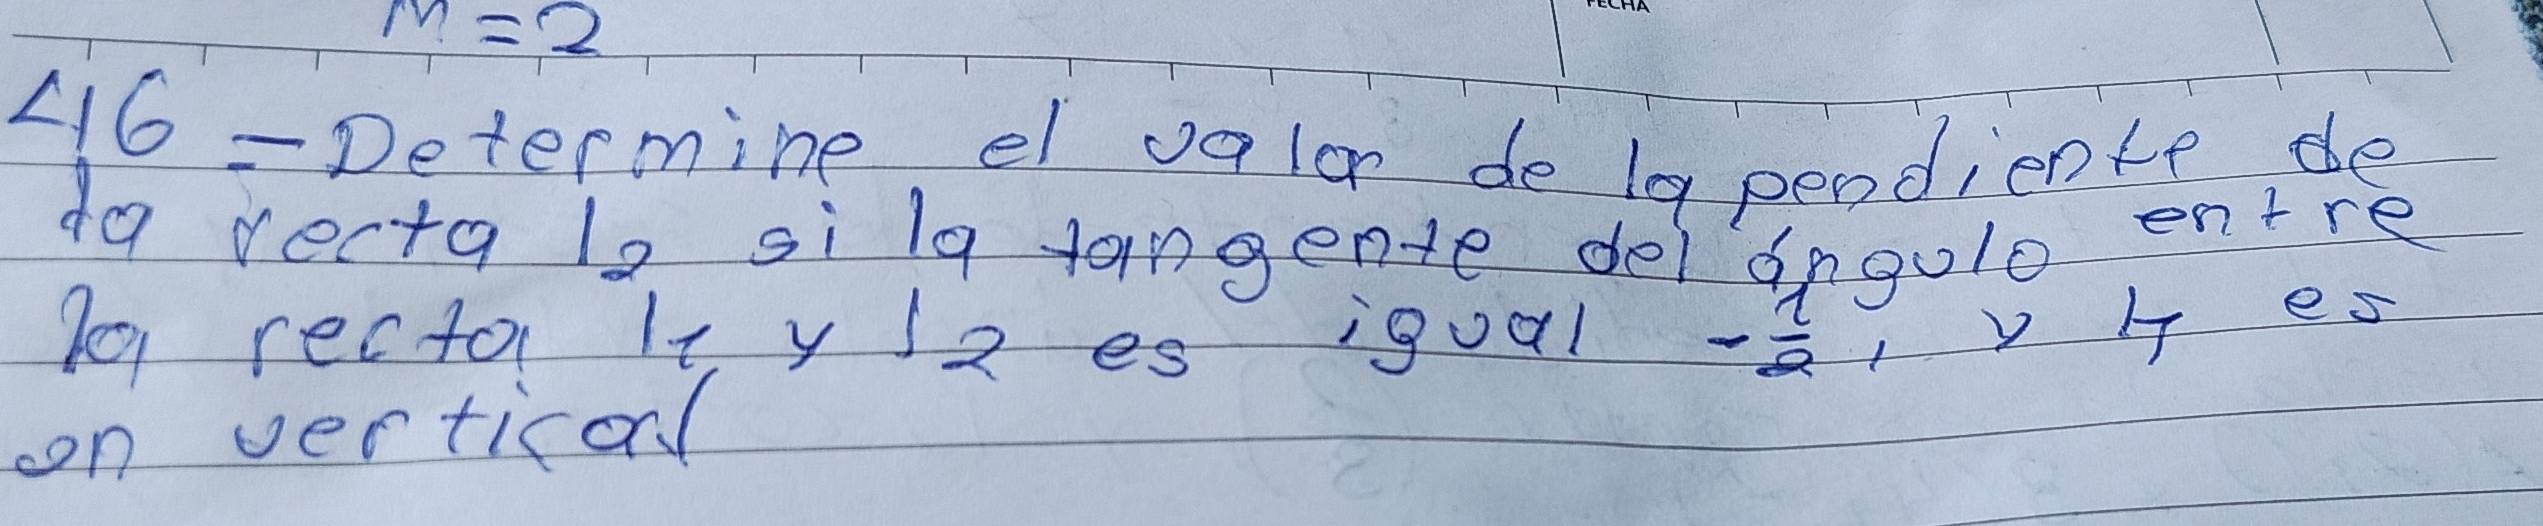 M = 2
FECHA
46 - Determine el valor de la pendiente de
la recta l2 si la tangente del ángulo entre
la recta l1 y l2 es igual -1/2, y l1 es
on vertical